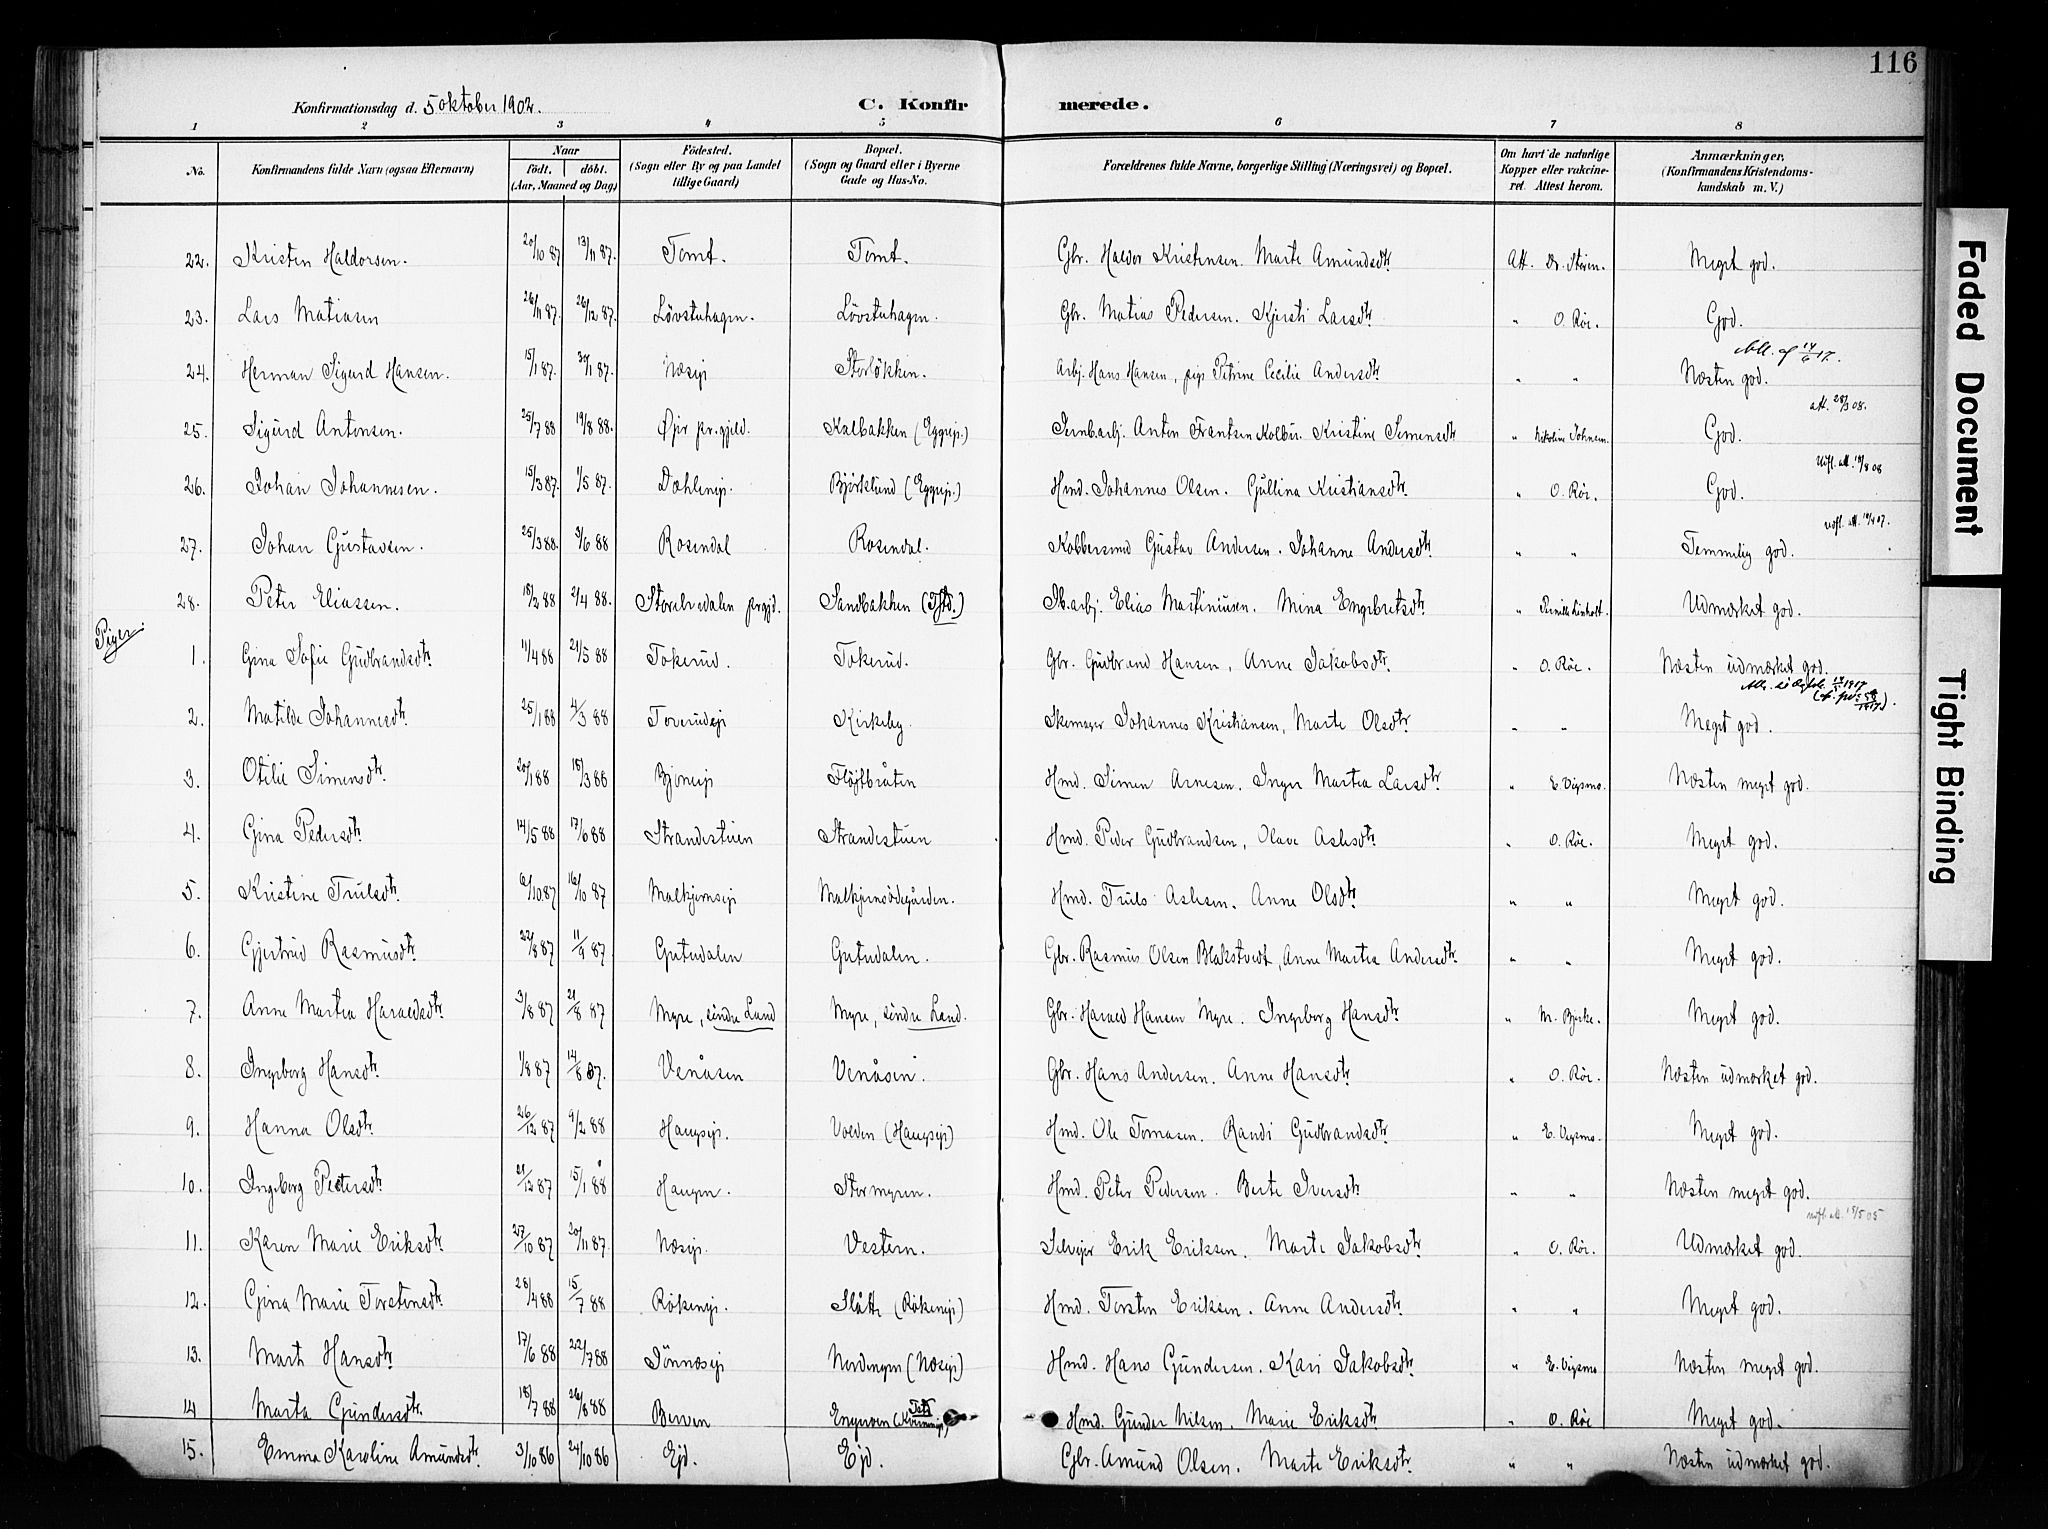 116
Konfirmationsdag d. 5 oktober 1902.
C. Konfirmerede.
1 2 3 4 5 6 7 8
No. Konfirmandens fulde Navn (ogsaa Efternavn) Naar födt. döbt. (Aar, Maaned og Dag) Födested. (Sogn eller By og paa Landet tillige Gaard) Bopæl. (Sogn og Gaard eller i Byerne Gade og Hus-No. Forældrenes fulde Navne, borgerlige Stilling (Næringsvei) og Bopæl. Om havt de naturlige Kopper eller vakcineret. Attest herom. Anmærkninger. (Konfirmandens Kristendomskundskab m. V.)
22. Kristen Haldorsen. 20/10 87 13/11 87. Tomt. Tomt. Gbr. Haldor Kristensen. Marte Amundsdtr. Att. Dr. Støren. Meget god.
23. Lars Matiasen 26/11 87. 26/12 87. Lövstuhagen. Lövstuhagen. Gbr. Matias Pedersen. Kjersti Larsdtr. " O. Röe. God.
24. Herman Sigurd Hansen. 15/1 87. 30/1 87. Næsej Storlökken. Arbj. Hans Hansen, pige Petrine Cecilie Andersdtr. " " Næsten god.
25. Sigurd Antonsen. 25/7 88 19/8 88. Øier pr.gjeld. Kalbakken (Eggeej.) Jernbarbj. Anton Frantsen Kolbu. Kristine Simensdtr " God. att. 28/3 08.
26. Johan Johannesen. 15/3 87. 1/5 87. Dahlenej. Björklund (Eggeej.) Hmd. Johannes Olsen. Gullina Kristiansdtr. " O. Röe. God. Udfl. att.
27. Johan Gustavsen. 25/3 88. 3/6 88 Rosendal Rosendal. Kobbersmed Gustav Andersen. Johanne Andersdtr. " " Temmelig god. udfl. att.
28. Peter Eliassen. 18/2 88 2/4 88. Storelvedalen prgjd. Sandbakken Jb.arbj. Elias Martiniusen. Mina Engebretsdtr. " Udmærket god.
Piger.
1. Gina Sofie Gudbrandsdtr. 11/4 88 21/5 88 Tokerud. Tokerud. Gbr. Gudbrand Hansen, Anne Jakobsdtr. " O. Röe. Næsten udmærket god.
2. Matilde Johannesdtr. 25/1 88 4/3 88 Toverudej Kirkeby. Skomager Johannes Kristiansen, Marte Olsdtr " " Meget god.
3. Otelie Simensdtr. 20/1 88 18/3 88 Bjoneej Flöjtbråten Hmd. Simen Arnesen. Inger Martea Larsdtr. " E. Vegsmo. Næsten meget god.
4. Gina Pedersdtr. 14/5 88 17/6 88 Strandestuen Strandestuen Hmd. Peder Gudbrandsen, Olave Aslesdtr. " O. Röe. Meget god.
5. Kristine Trulsdtr. 6/10.87 16/10 87 Malkjernsej Malkjernsödegården. Hmd. Truls Aslesen. Anne Olsdtr. " " Meget god.
6. Gjertrud Rasmusdtr. 22/8 87 11/9 87 Gutudalen Gutudalen. Gbr. Rasmus Olsen Blakstvedt, Anne Martea Andersdtr. " " Meget god.
7. Anne Martea Haraldsdtr. 3/8 87 21/8 87 Myre, söndre Land Myre, söndre Land. Gbr. Harald Hansen Myre. Ingeborg Hansdtr. " M. Bjerke. Meget god.
8. Ingeborg Hansdtr. 1/8 87 14/8 87. Venåsen Venåsen. Gbr. Hans Andersen. Anne Hansdtr. " O. Röe. Næsten udmærket god.
9. Hanna Olsdtr. 26/12 87 9/2 88 Haugsej. Volden (Haugsej) Hmd. Ole Tomasen. Randi Gudbrandsdtr. " E. Vegsmo. Meget god.
10. Ingeborg Petersdtr. 21/12 87 15/1 88 Haugen. Stormyren. Hmd. Peter Pedersen. Berte Iversdtr. " " Næsten meget god.
11. Karen Marie Eriksdtr. 27/10 87 20/11 87. Næsej. Vestern. Selvejer Erik Eriksen. Marte Jakobsdtr. " O. Röe. Udmærket god.
12. Gina Marie Torstensdtr. 28/4 88 15/7 88 Rökeneej. Slåtte (Rökeneej) Hmd. Torsten Eriksen. Anne Andersdtr. " " Meget god.
13. Marte Hansdtr. 17/6 88 22/7 88 Sönnesej Nordengen (Næsej) Hmd. Hans Gundersen. Kari Jakobsdtr. " E. Vegsmo Næsten meget god.
14 Marta Gundersdtr. 18/7 88 26/8 88 Berven Hmd. Gunder Nilsen. Marie Eriksdtr. " O. Röe Meget god.
15. Emma Karoline Amundsdtr. 3/10 86 24/10 86 Ejd. Ejd. Gbr. Amund Olsen. Marte Eriksdtr. " " Næsten udmærket god.
Faded Document
Tight Binding